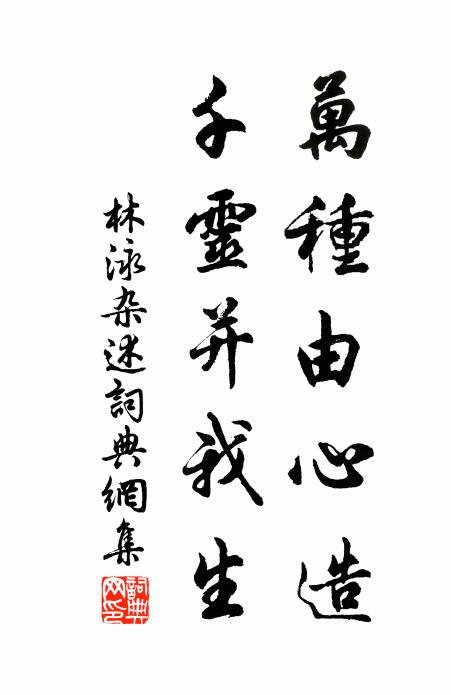 萬種由心造
千靈并我生
林泳杂述詞典網集
詞典網印